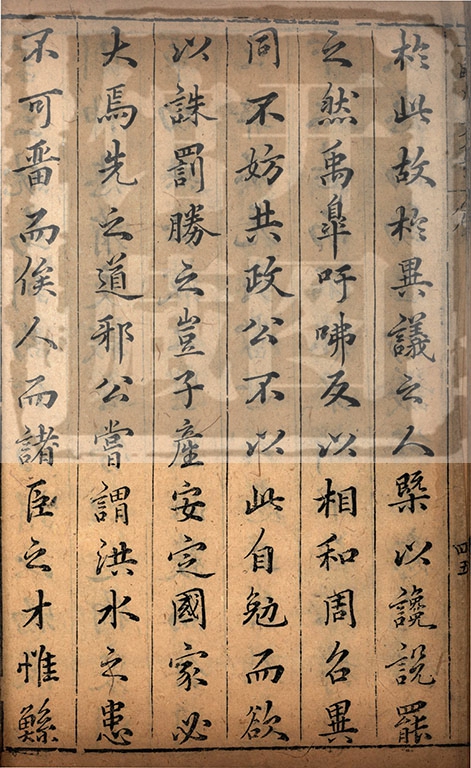 扵此故扵異議之人槩以讒說罷
之然禹臯吁咈反以相和周召異
同不妨共政公不以此自勉而欲
以誅罰勝之豈子産安定國家必
大焉先之道邪公嘗謂洪水之患
不可畱而俟人而諸臣之才惟鯀
四五